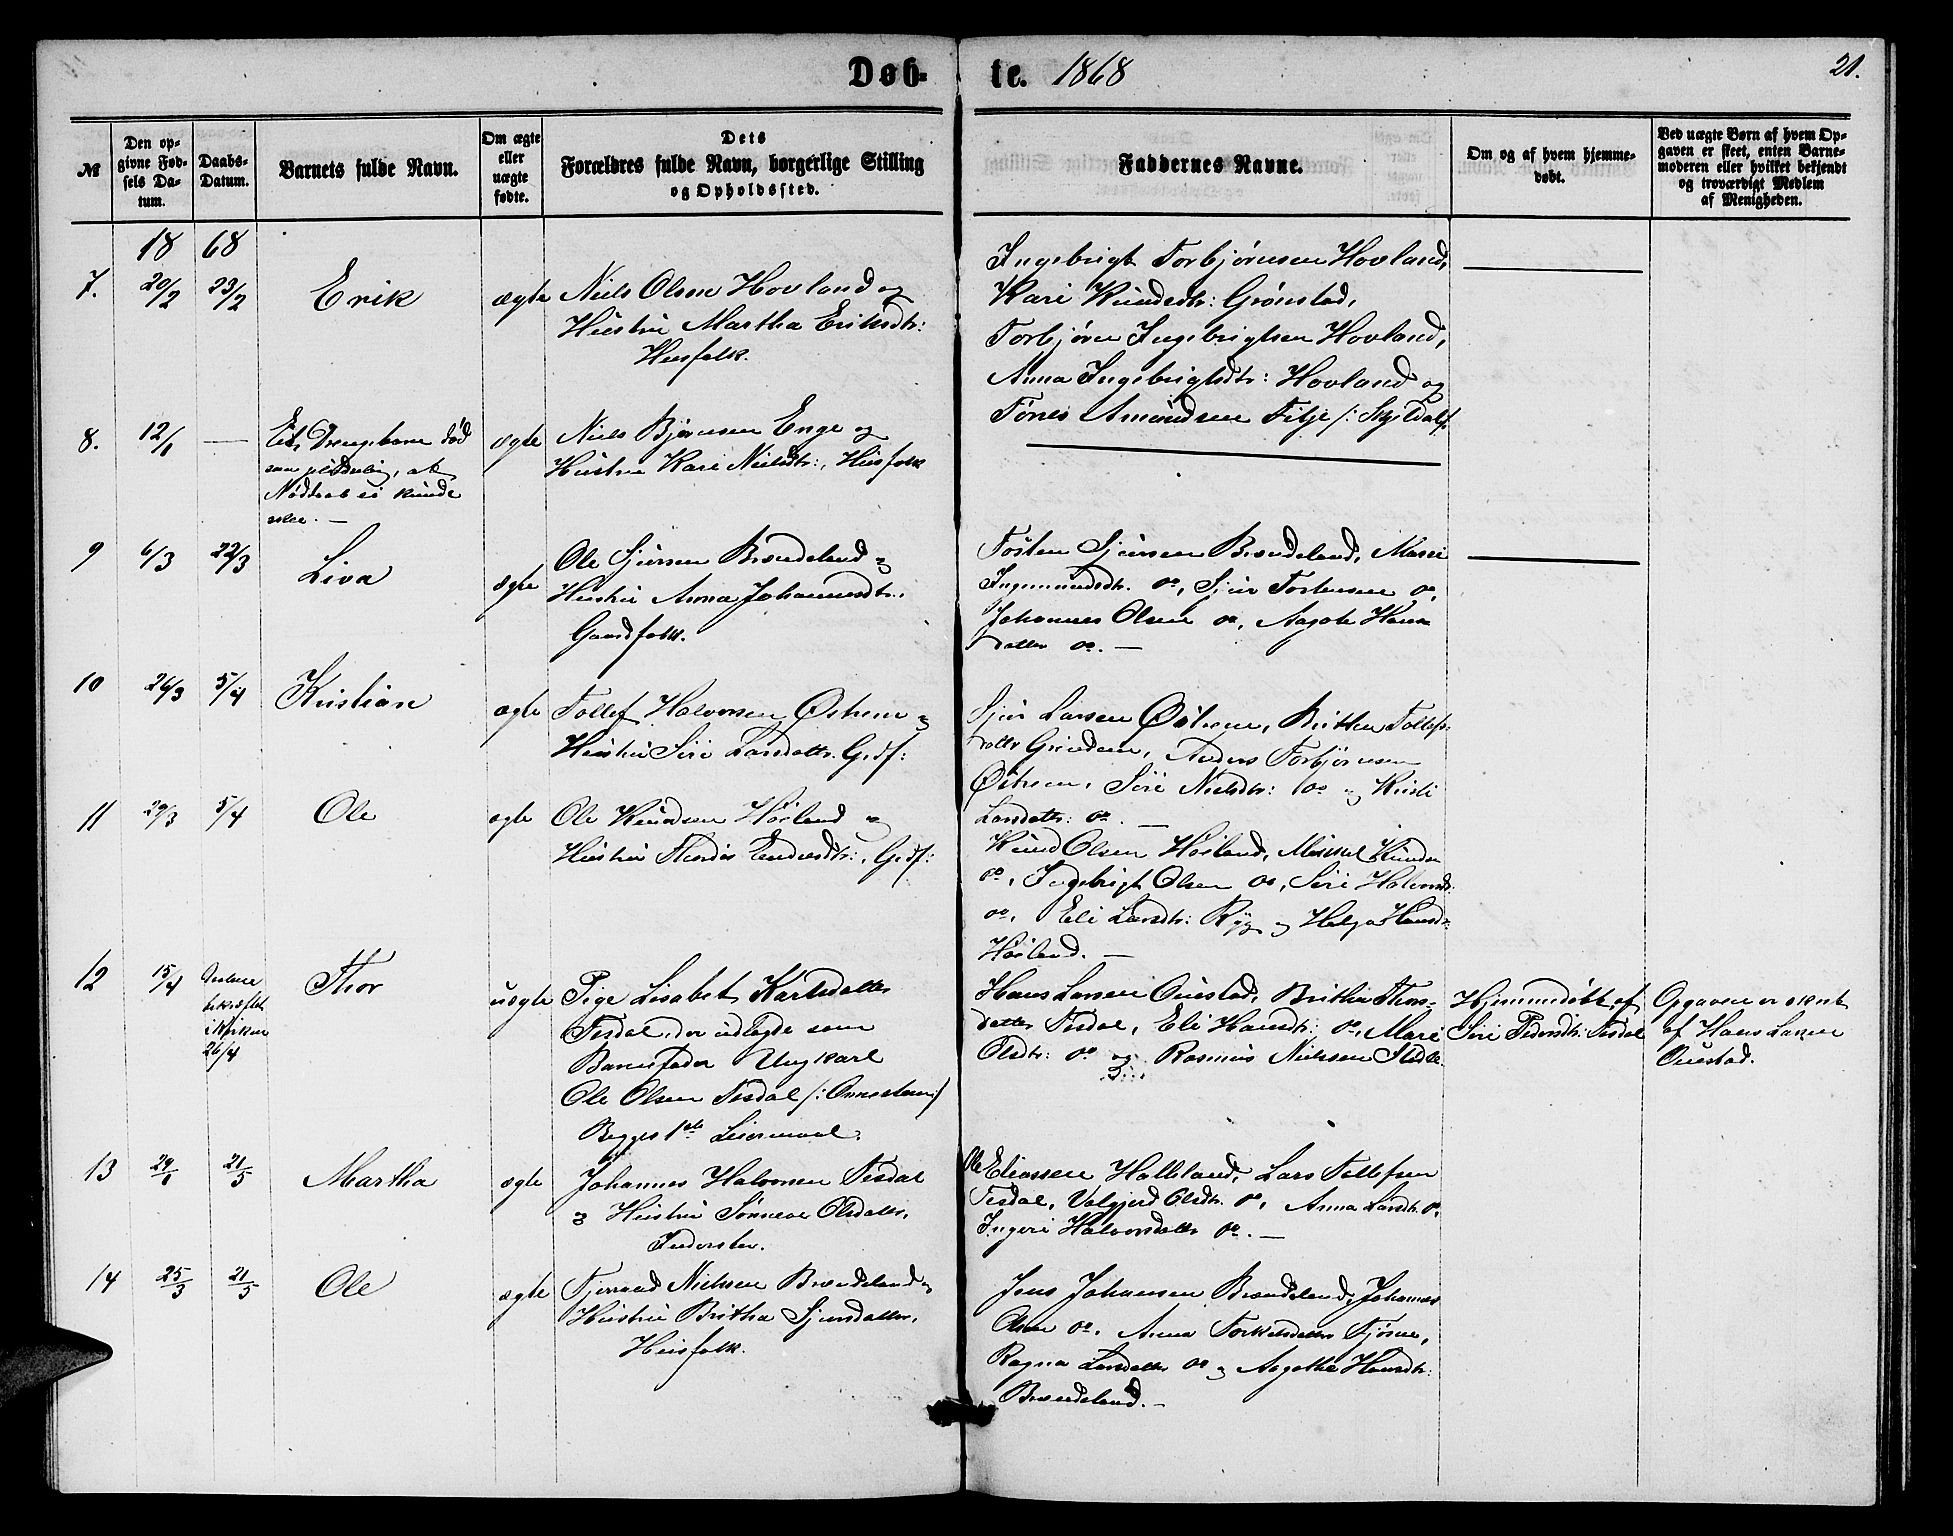 Døb-
te. 1868
21.
№
Den op-
givne Fød-
sels Da-
tum.
Daabs-
Datum.
Barnets fulde Navn.
Om ægte
eller
uægte
fødte.
Dets
Forældres fulde Navn, borgerlige Stilling
og Opholdssted.
Faddernes Navne.
Om og af hvem hjemme-
døbt.
Ved uægte Børn af hvem Op-
gaven er skeet, enten Barne-
moderen eller hvilket bekjendt
og troværdigt Medlem
af Menigheden.
18 68
7.
20/2
23/2
Erik
ægte
Niels Olsen Hovland og
Hustru Martha Eriksdtr:
Husfolk.
Ingebrigt Torbjørnsen Hovland,
Kari Knudsdtr: Grønstad,
Torbjørn Ingebrigtsen Hovland,
Anna Ingebrigtsdtr: Hovland og
Tønes Amundsen Fitje /: Skjeldal :/
8.
12/1
—
Et Drengebarn død
at
Nøddaab ei kunde
skee. —
ægte
Niels Bjørnsen Enge og
Hustru Kari Nielsdtr:, Husfolk
9
6/3
22/3
Liva
ægte
Ole Sjursen Brændeland og
Hustru Anna Johannesdtr.
Gaardfolk.
Tosten Sjursen Brændeland, Mari
Ingemundsdtr. do, Sjur Tostensen do,
Johannes Olsen do, Aagote Hans
datter do. —
10
26/3
5/4
Kristian
ægte
Tollef Halvorsen Østrem og
Hustru Siri Larsdatter. Grdf:
Sjur Larsen Østrem, Brithe Tollefs
datter Grindem, Anders Torbjørnsen
Østrem, Siri Nielsdtr: do og Kristi
Larsdatter: do. —
11
29/3
5/4
Ole
ægte
Ole Knudsen Høiland og
Hustru Thordis Endresdtr:, Grdf:
Knud Olsen Høiland, Mikkel Knudsen
do, Ingebrigt Olsen do, Siri Halvorsd:
do, Eli Larsdtr: Ryg og Helga Hansd:
Høiland. —
12
15/4
Daaben
bekræftet
i Kirken
26/4
Thor
uægte
Pige Lisabet Karlsdatter
Tesdal, der udlagde som
Barnefader Ungkarl
Ole Olsen Tesdal /: :/
Begges 1ste Leiermaal.
Hans Larsen Ouestad, Britha Thors-
datter Tesdal, Eli Hansdtr: do, Mari
Olsdtr: do og Rasmus Nielsen
Hjemmedøbt af
Siri Pedersdtr: Tesdal
Opgaven er skeet
af Hans Larsen
Ouestad.
13
29/1
21/5
Martha
ægte
Johannes Halvorsen Tesdal
og Hustru Sønneve Olsdatter,
Inderster.
Ole Eliassen Halleland, Lars Tollefsen
Tesdal, Valgjerd Olsdtr. do, Anna Larsdtr. do,
Ingeri Halvorsdatter do. —
14
25/3
21/5
Ole
ægte
Tjerand Nielsen Brændeland og
Hustru Britha Sjursdatter,
Husfolk.
Jens Johansen Brændeland, Johannes
Olsen do, Anna Torkelsdatter Fjøsne,
Ragna Larsdatter do og Aagotha Hansdtr:
Brændeland. —